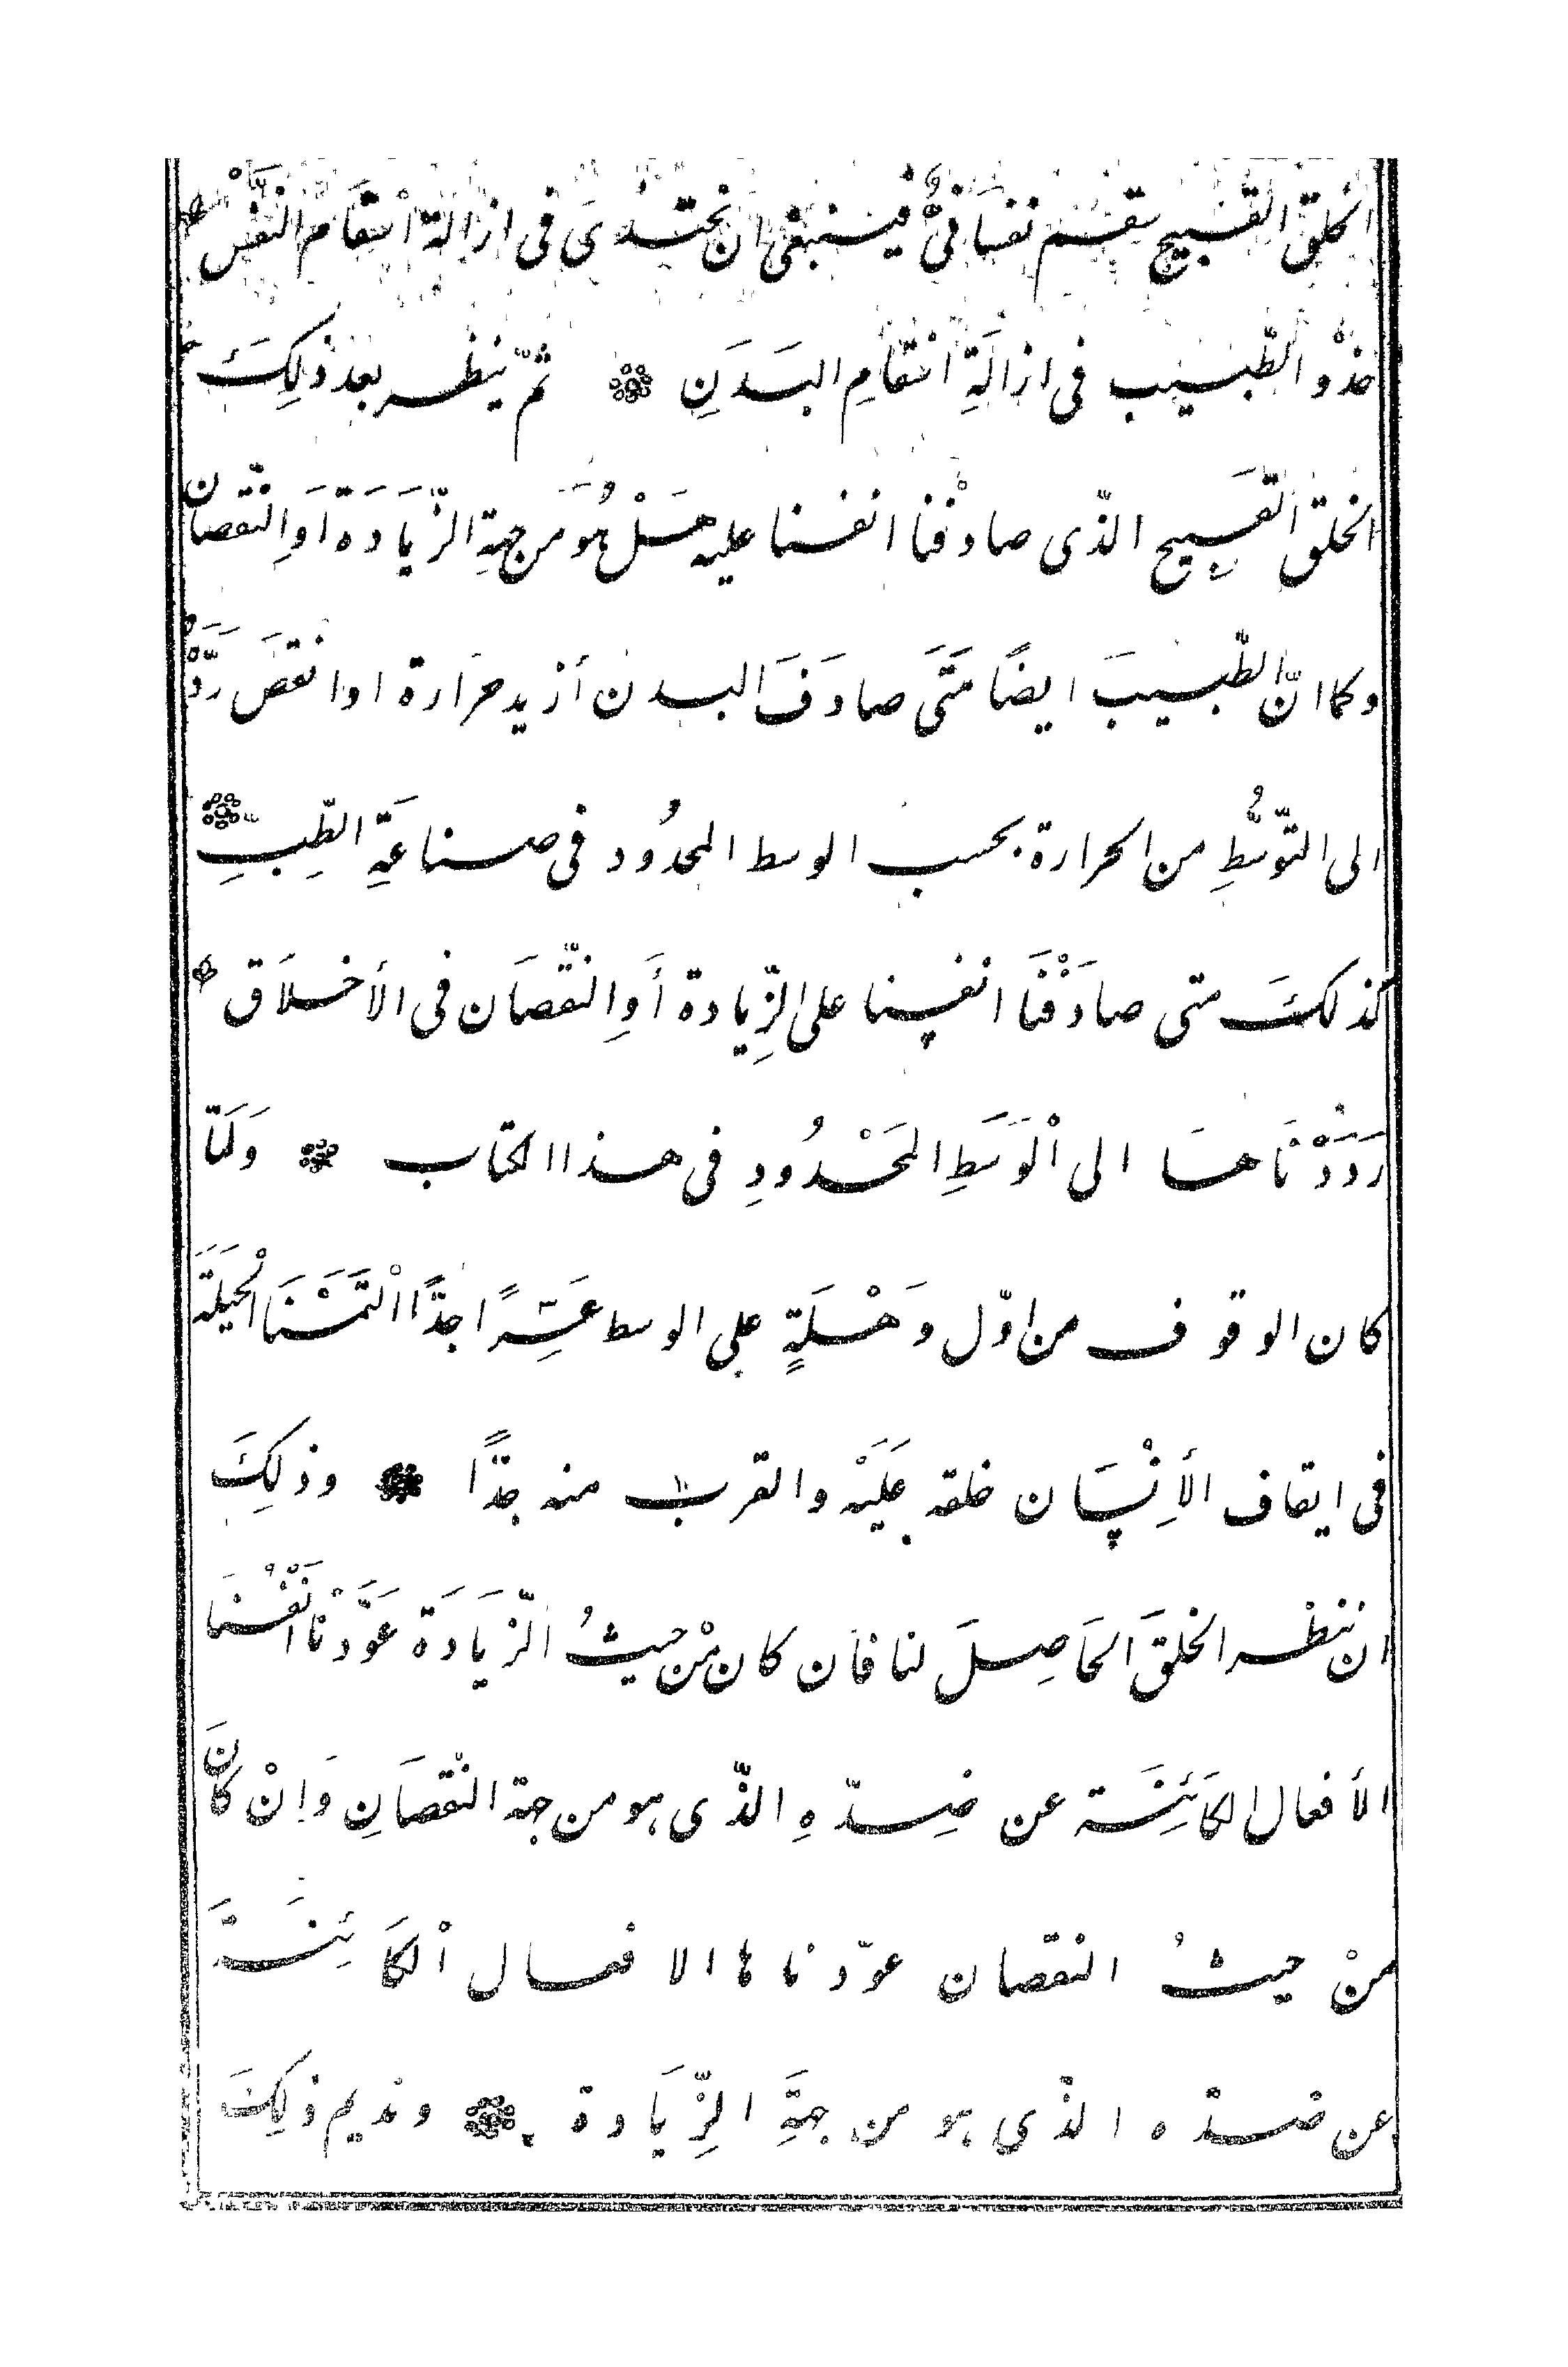 الخلق القبيح سقم نفسانىّ فينبغى ان نحتذى فى ازالة اسقام النفس
حذو الطّبيب فى ازالَةِ اسقامِ البَدَنِ ثمّ ينظر بعد ذلِكَ
الخلق القَبيح الّذى صادفْنا انفسنا عليه هَلْ هُوَ من جهةِ الزّيَادَة اَوِ النقصان
وكما انّ الطّبيبَ ايضًا مَتَى صادَفَ البدن أزيد حرَارة او انقصَ رَدَّهُ
الى التّوسُّطِ من الحرارة بحسب الوسط المحدُود فى صناعَةِ الطِّبِ
كذلكَ متى صادَفْنَا انفسنا على الزِّيادة أَوِ النّقصَان فى الأخلاَق
رَدَدْنَاهَا الى اْلوَسَطِ المَحْدُودِ فى هذا الكتاب وَلَمّا
كان الوقوف من اوّل وَهْلَةٍ على الوسط عَسِرًا جدًّا اْلتَمَسْنَا الْحيلَةَ
فى ايقاف الأِنْسَان خلقه عَلَيْه والقرب منه جدًّا وذلِكَ
ان ننظر الخلقَ الحَاصِلَ لنا فان كان مْن حيثُ الزّيَادَة عَوَّدْنَا انْفُسَنَا
الأفعال الكَائِنَة عن ضِدّهِ الذّى هو من جهة النْقصَانِ وَاِنْ كَانَ
منْ حيثُ النقصان عوّدناها الافعال اْلكَائِنَةَ
عن ضدّه الذّى هو من جِهَةِ الزِّيَادة ونديم ذلِكَ